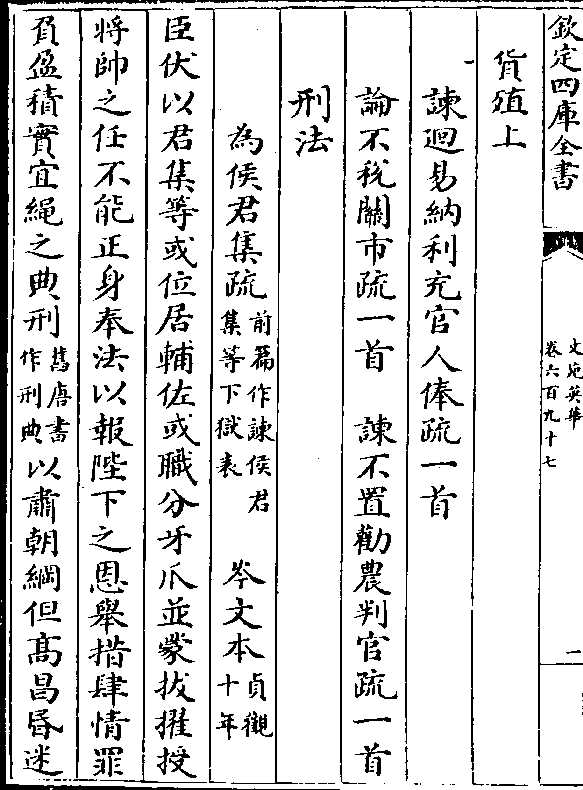 欽定四庫全書
文苑英華
卷六百九十七
一
貨殖上
諫迴易納利充官人俸疏一首
論不稅關市疏一首　諫不置勸農判官疏一首
刑法
為侯君集疏前篇作諫侯君集等下獄表　岑文本貞觀十年
臣伏以君集等或位居輔佐或職分牙爪並蒙拔擢授
將帥之任不能正身奉法以報陛下之恩舉措肆情罪
負盈積實宜繩之典刑舊唐書作刑典以肅朝綱但髙昌昏迷